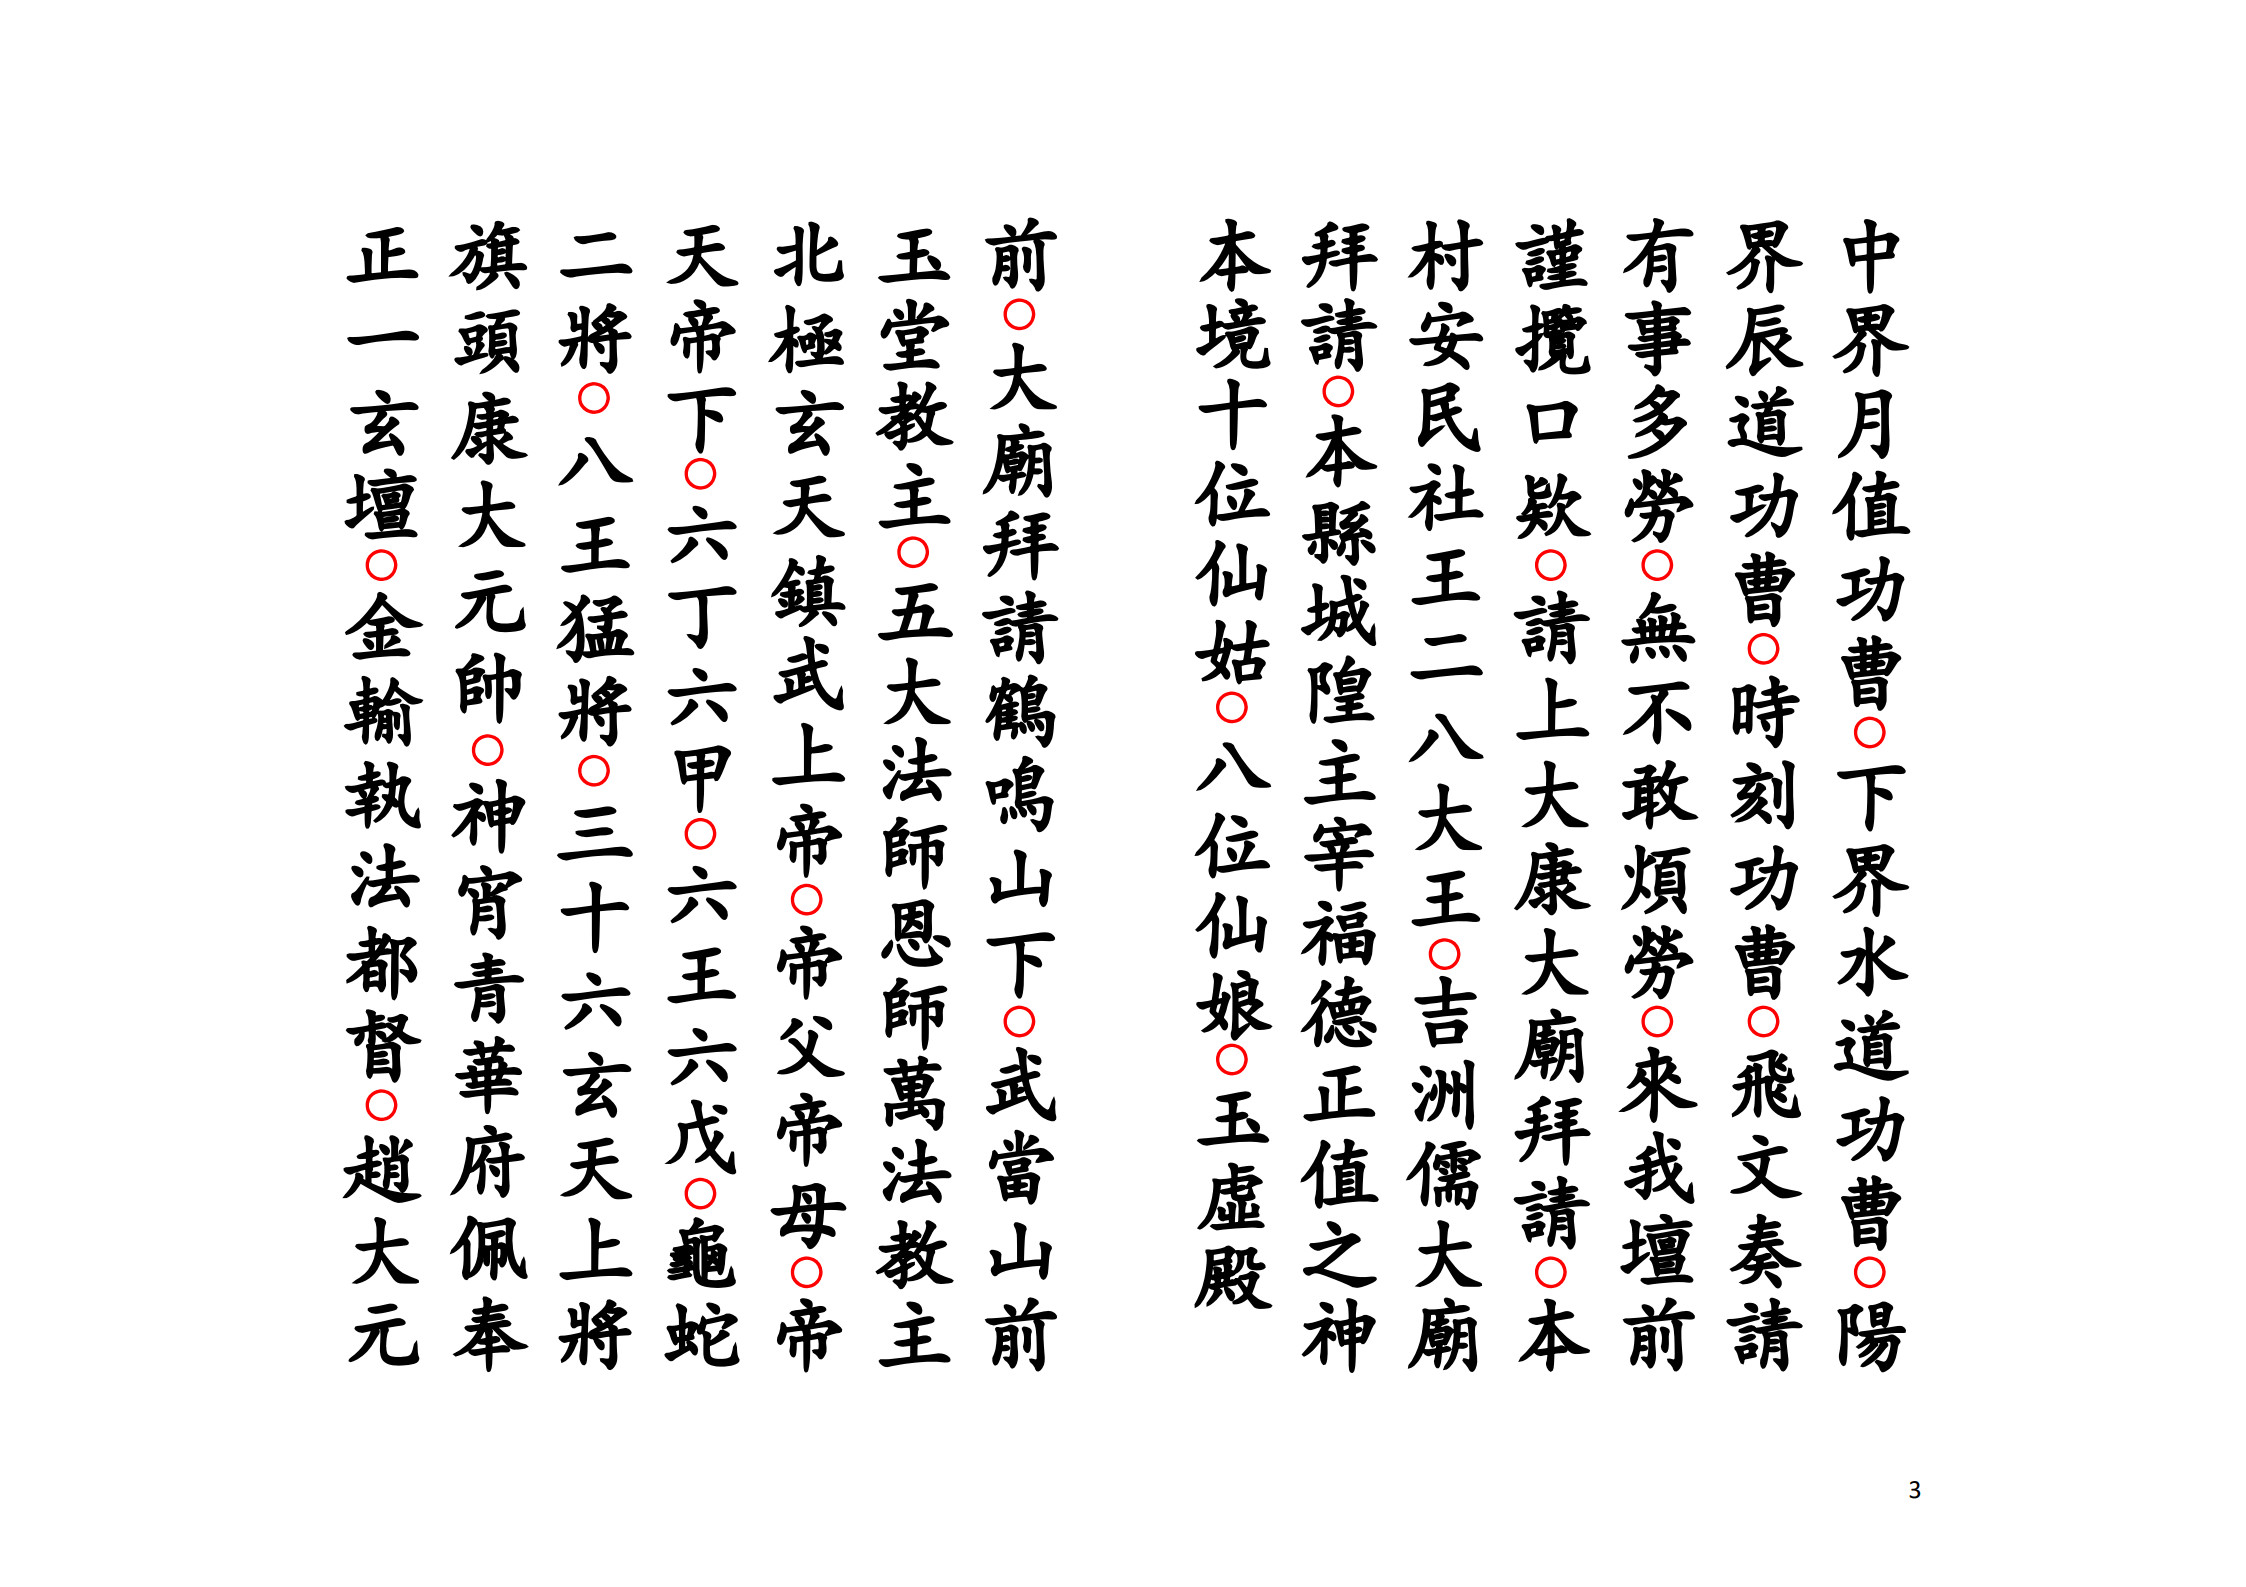 中界月值功曹○下界水道功曹○陽
界辰道功曹○時刻功曹○飛文奏請
有事多勞○無不敢煩勞○來我壇前
謹攬口欵○請上大康大廟拜請○本
村安民社王二八大王○吉洲儒大廟
拜請○本縣城隍主宰福德正值之神
本境十位仙姑○八位仙娘○玉虛殿
前○大廟拜請鶴鳴山下○武當山前
玉堂教主○五大法師恩師萬法教主
北極玄天鎮武上帝○帝父帝母○帝
天帝下○六丁六甲○六王六戊○龜蛇
二將○八王猛將○三十六玄天上將
旗頭康大元帥○神宵青華府佩奉
正一玄壇○金輸執法都督○趙大元
3